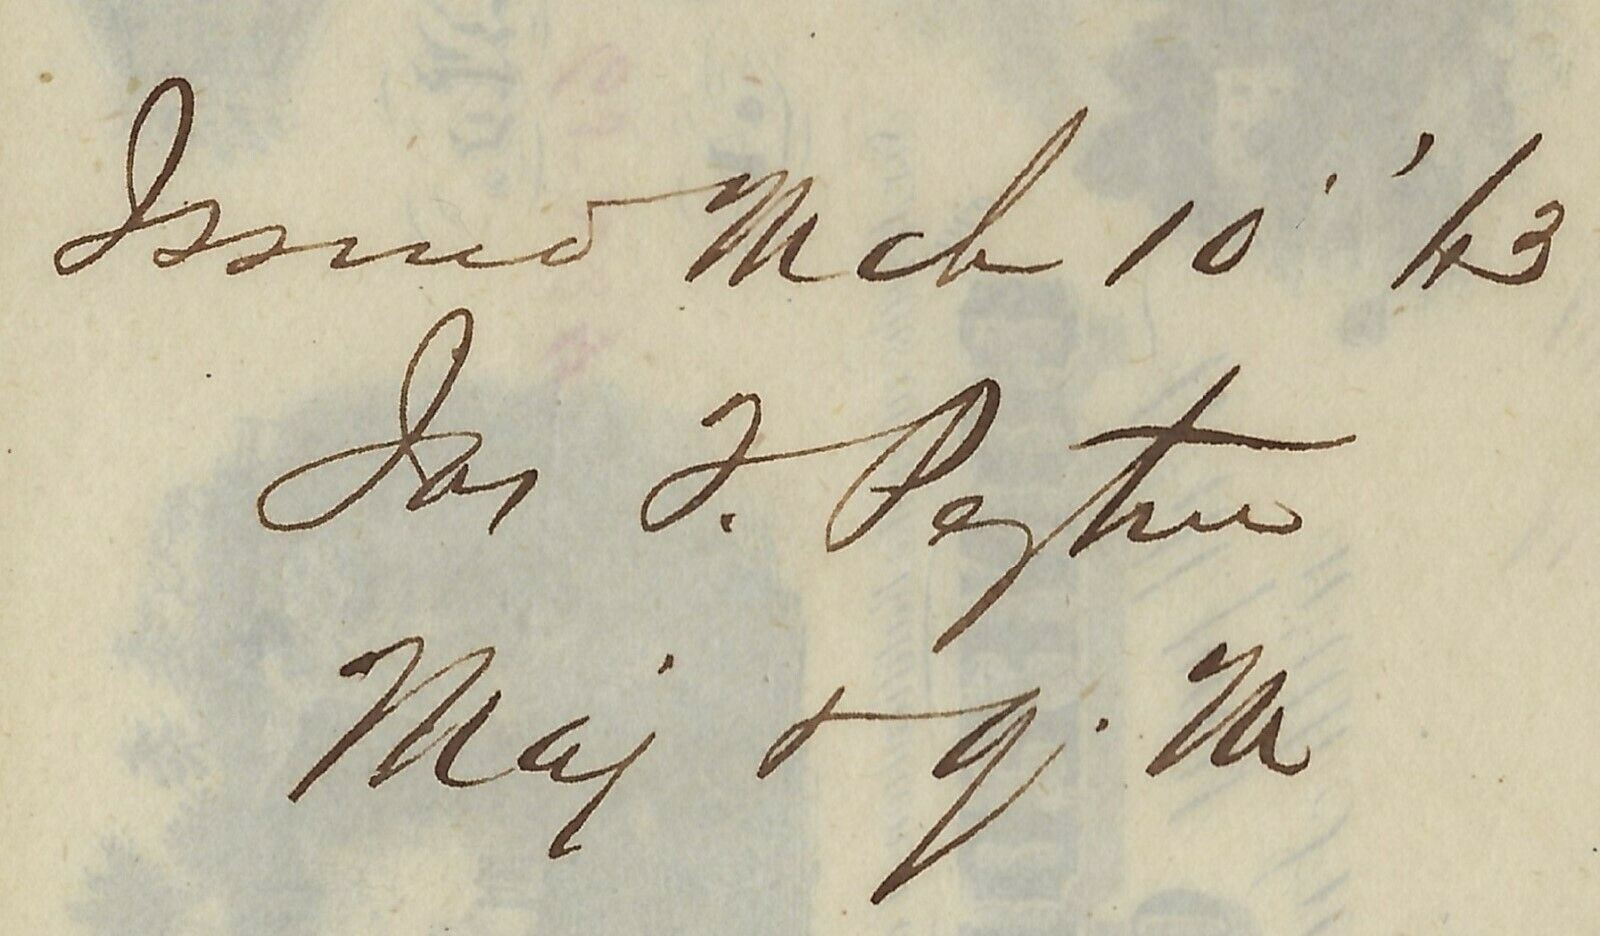 Issued Mch 10 '63
Jas F. Peytru
Maj & Q. M